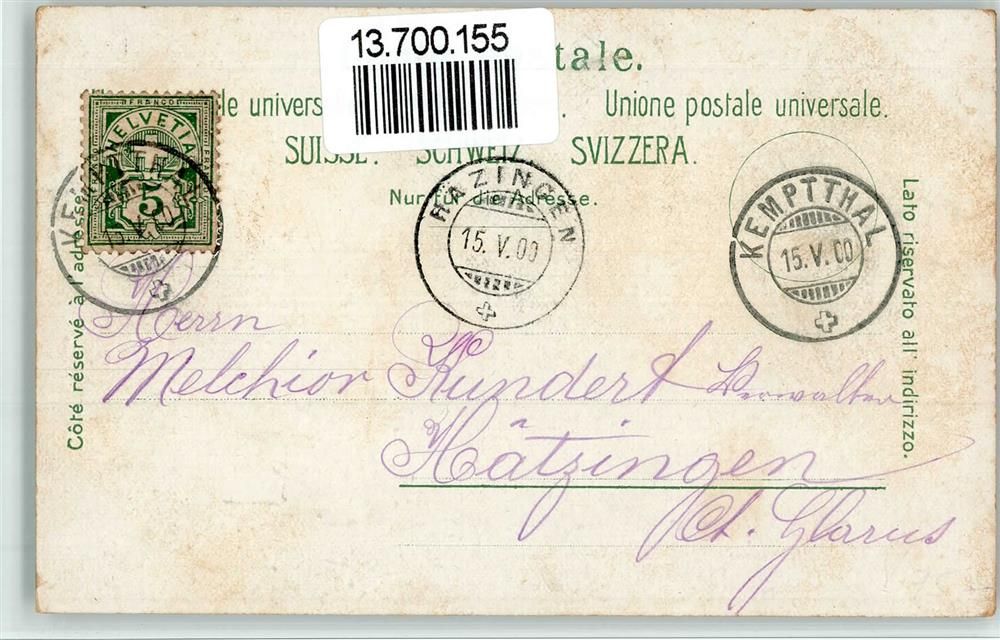 13.700.155
tale.
le univers . Unione postale universale.
SUISSE. SCHWEIZ. SVIZZERA.
Nur für die Adresse.
FRANCO
HELVETIA
5
HÄZINGEN
15. V. 00
KEMPTTHAL
15. V. 00
Côté réservé à l'adresse.
Lato riservato all' indirizzo.
Herrn
Melchior Kundert Verwalter
Hätzingen
Ct. Glarus